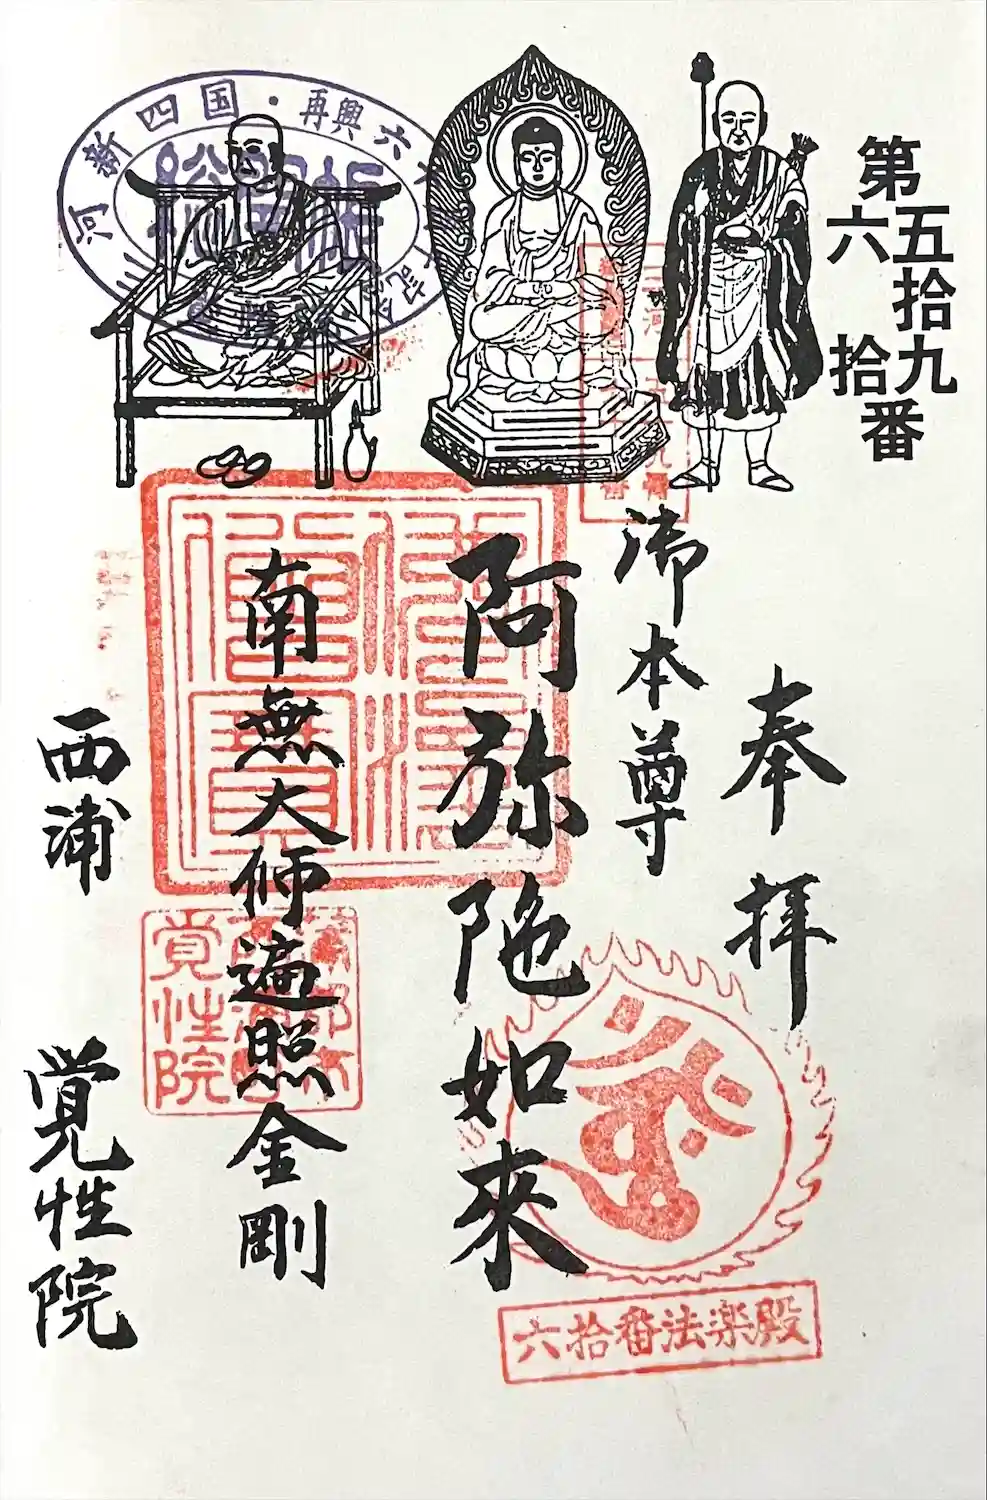 第
五拾九
六拾
番
奉拝
御本尊
阿弥陀如来
南無大師遍照金剛
西浦 覚性院
三河新四国・再興六
佛法僧寶
覚性院
六拾番法楽殿